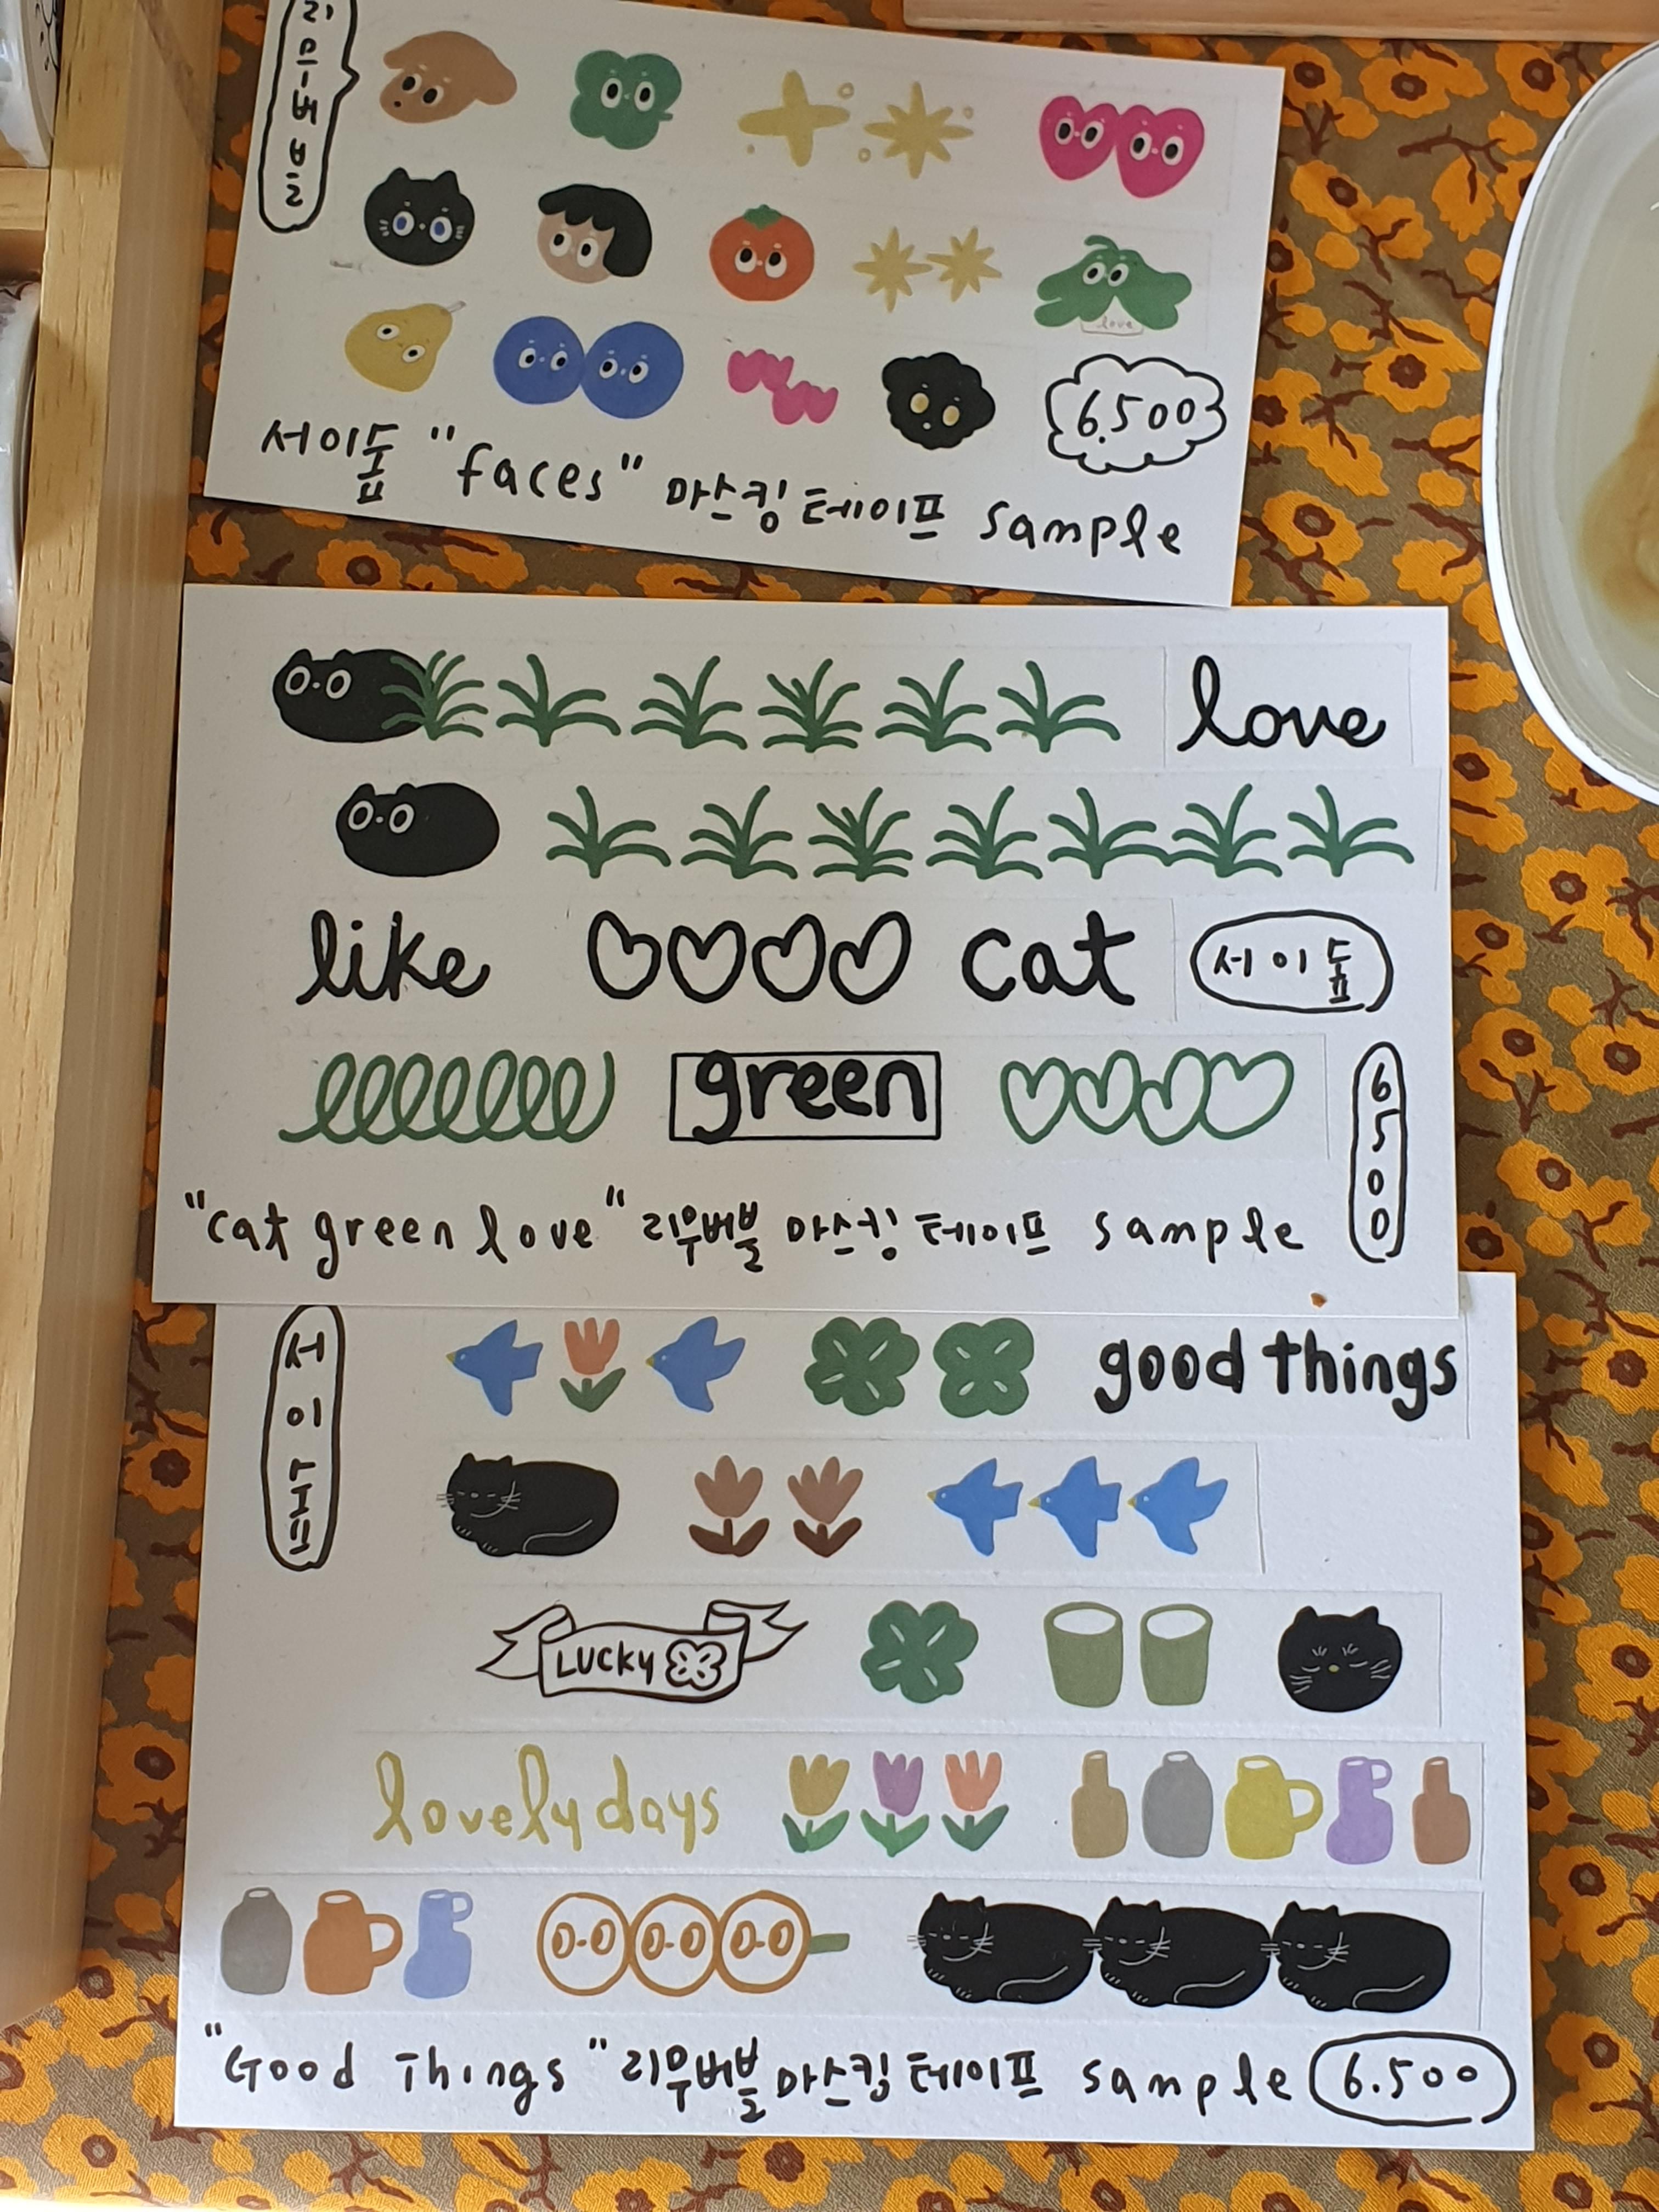 리무버블
love
6.500
서이돞 "faces" 마스킹 테이프 sample
love
like cat 서이돞
green
6500
"cat green love" 리무버블 마스킹 테이프 sample
서이돞
good things
LUCKY
lovely days
"Good Things" 리무버블 마스킹 테이프 sample 6.500